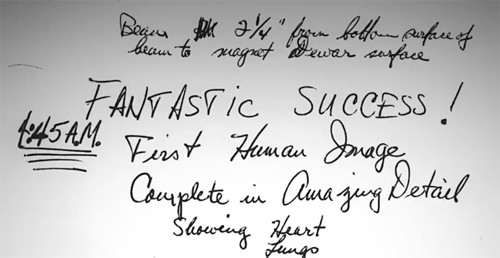 Beam 2 1/4" from bottom surface of
beam to magnet Dewar surface
FANTASTIC SUCCESS!
4:45 A.M.
First Human Image
Complete in Amazing Detail
Showing Heart
Lungs